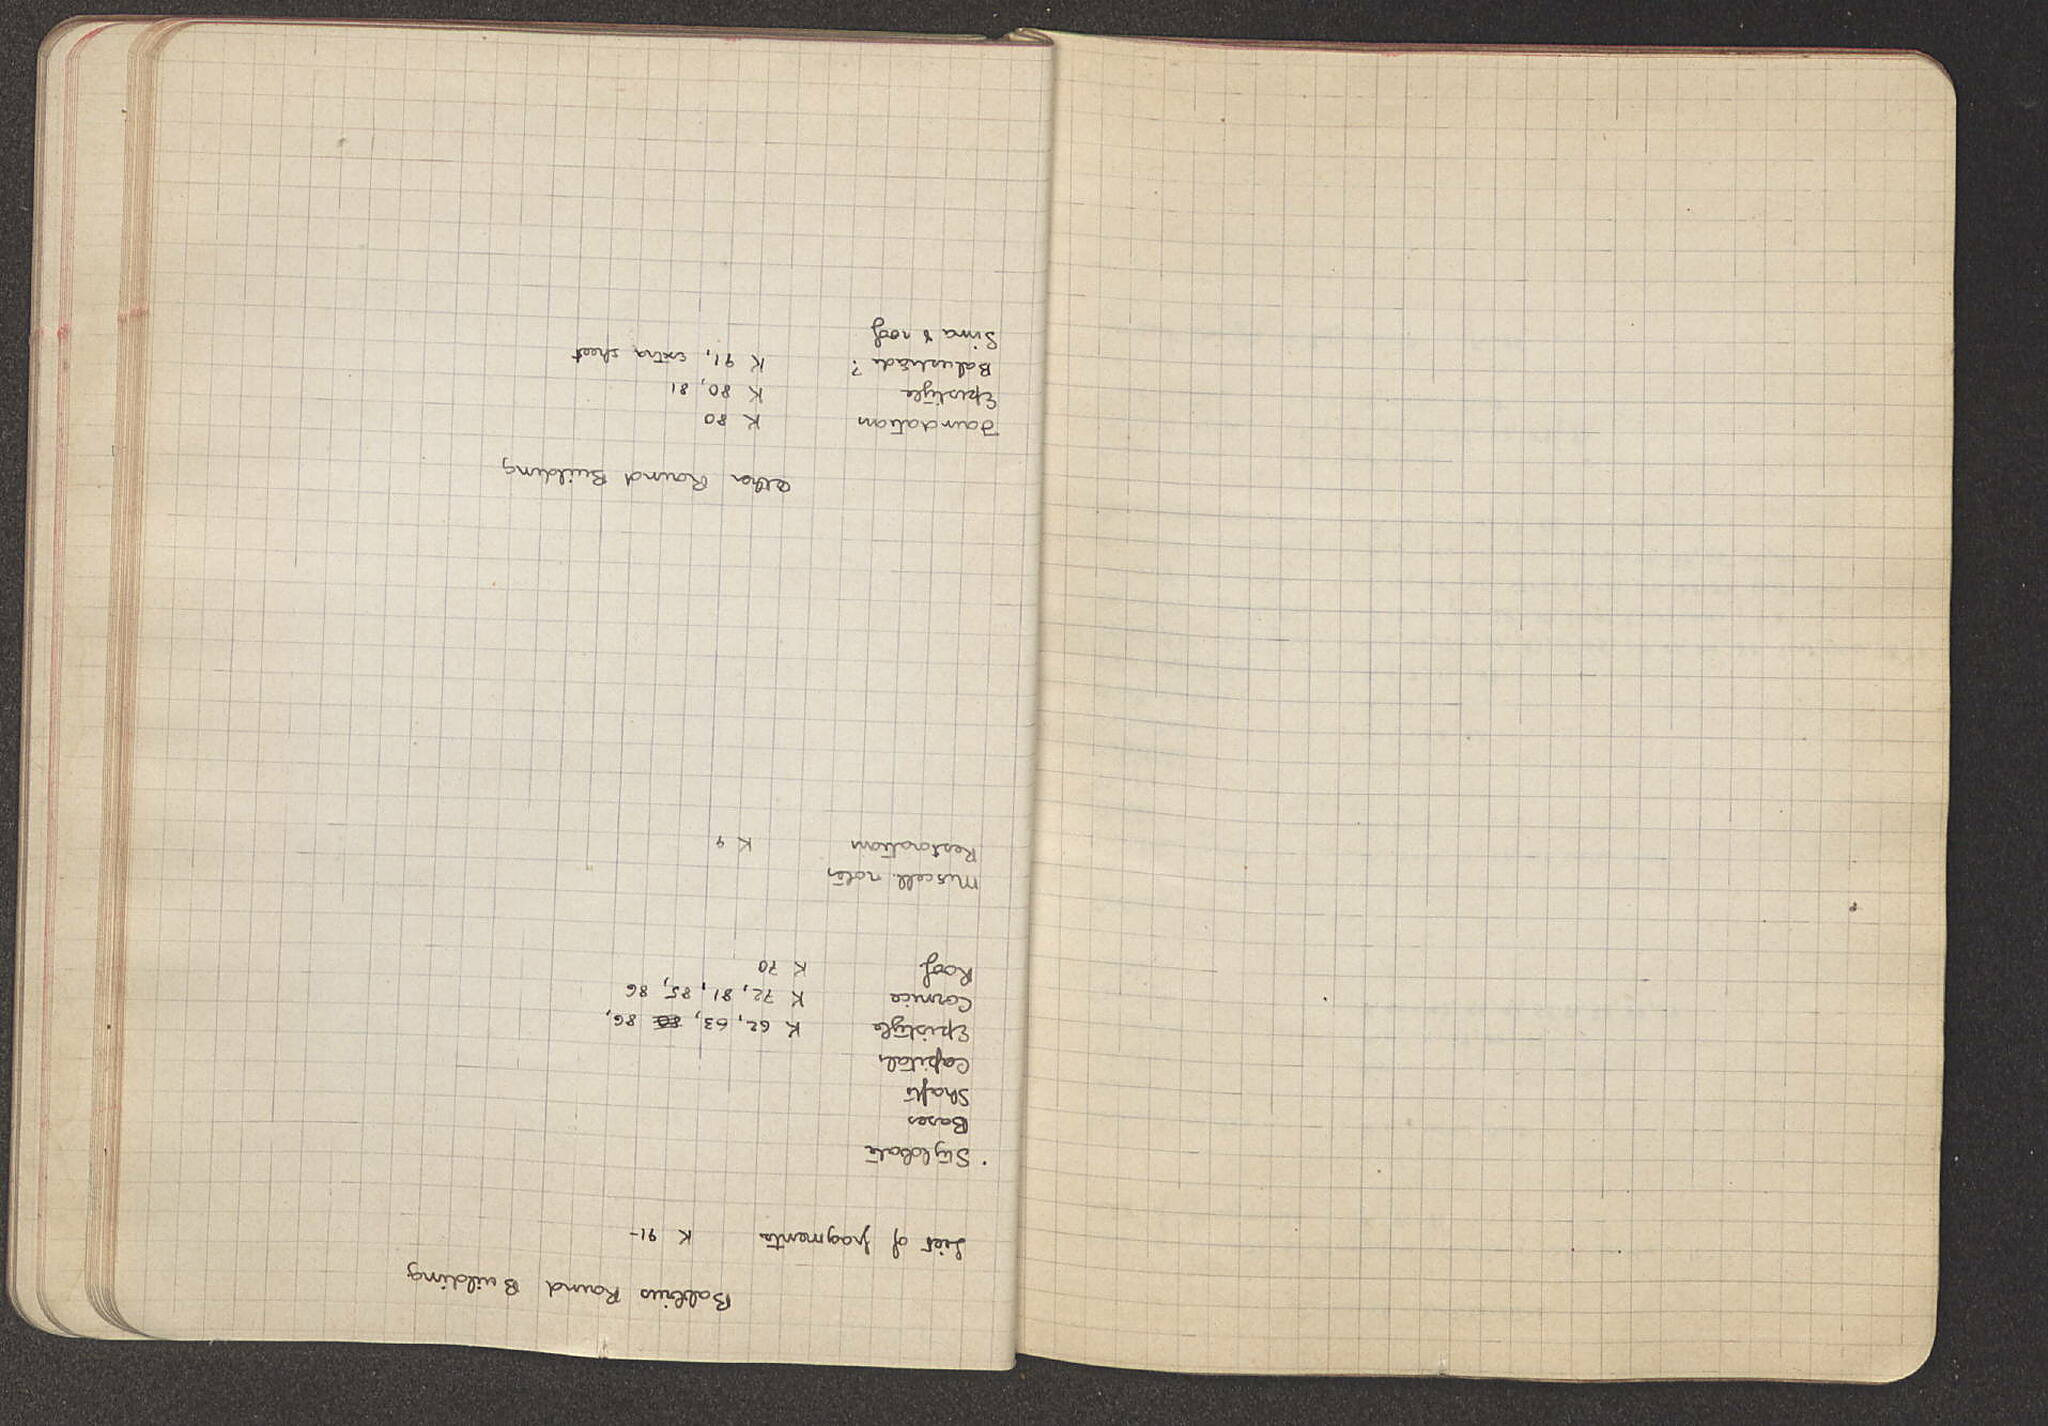 Babbius Round Building
List of fragments K 91-
Stylobate
Bases
Shafts
Capitals
Epistyle K 62, 63, 86,
Cornice K 72, 81, 85, 86
Roof K 70
Miscell. notes
Restoration K 9
Other Round Building
Foundation K 80
Epistyle K 80, 81
Balustrade? K 91, extra sheet
Sima & roof